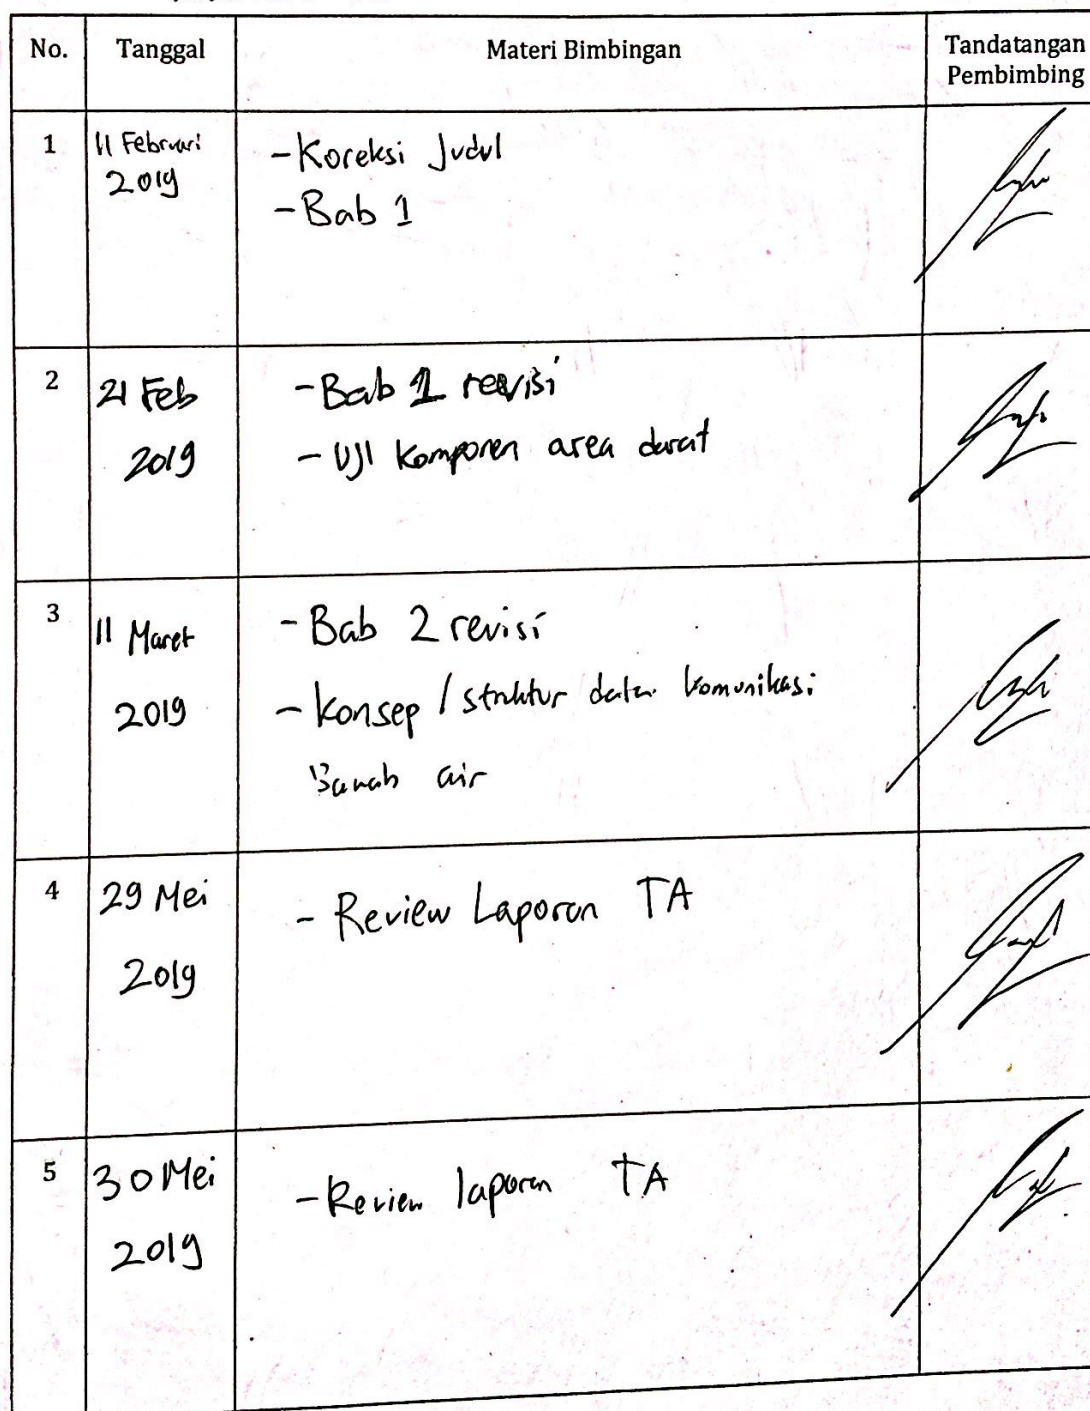 No. Tanggal Materi Bimbingan Tandatangan
Pembimbing
1 11 Februari - Koreksi Judul
2019
- Bab 1
2 21 Feb - Bab 1 revisi
2019 - Uji komponen area darat
3 11 Maret - Bab 2 revisi
2019 - Konsep / struktur data komunikasi
Bawah air
4 29 Mei - Review Laporan TA
2019
5 30 Mei - Review laporan TA
2019